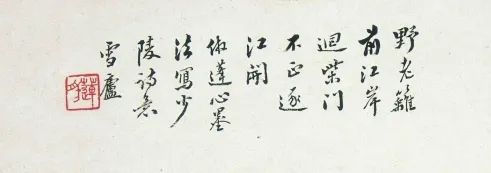 野老籬
前江岸
迴柴門
不正逐
江開
倣蓬心墨
法寫少
陵詩意
雪廬